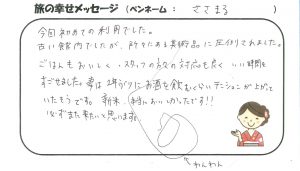 旅の幸せメッセージ（ペンネーム： ささまる ）
今回初めての利用でした。
古い館内でしたが、所々にある美術品に圧倒されました。
ごはんもおいしく、スタッフの方々の対応も良く いい時間を
すごせました。妻は2年ぶりにお酒を飲むくらいテンションが上がって
いたそうです。新米、本当においしかったです!!
必ずまた来たいと思います。
わんわん